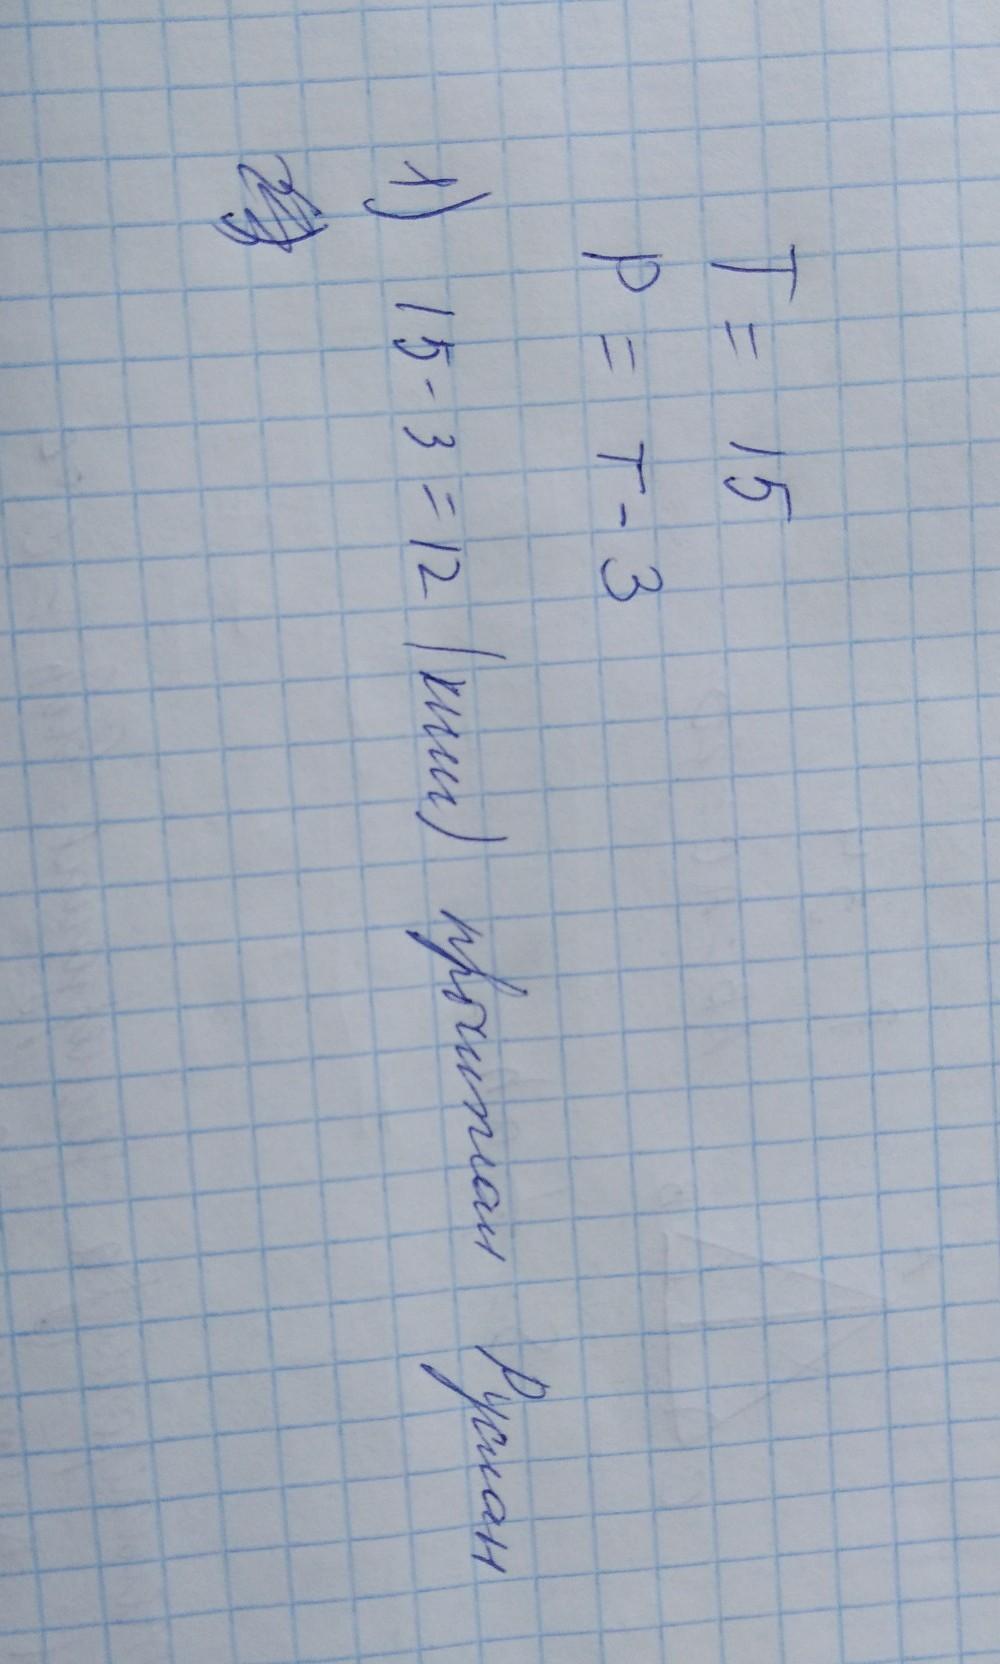 Т = 15
Р = Т - 3
1) 15 - 3 = 12 (книг) прочитал Руслан